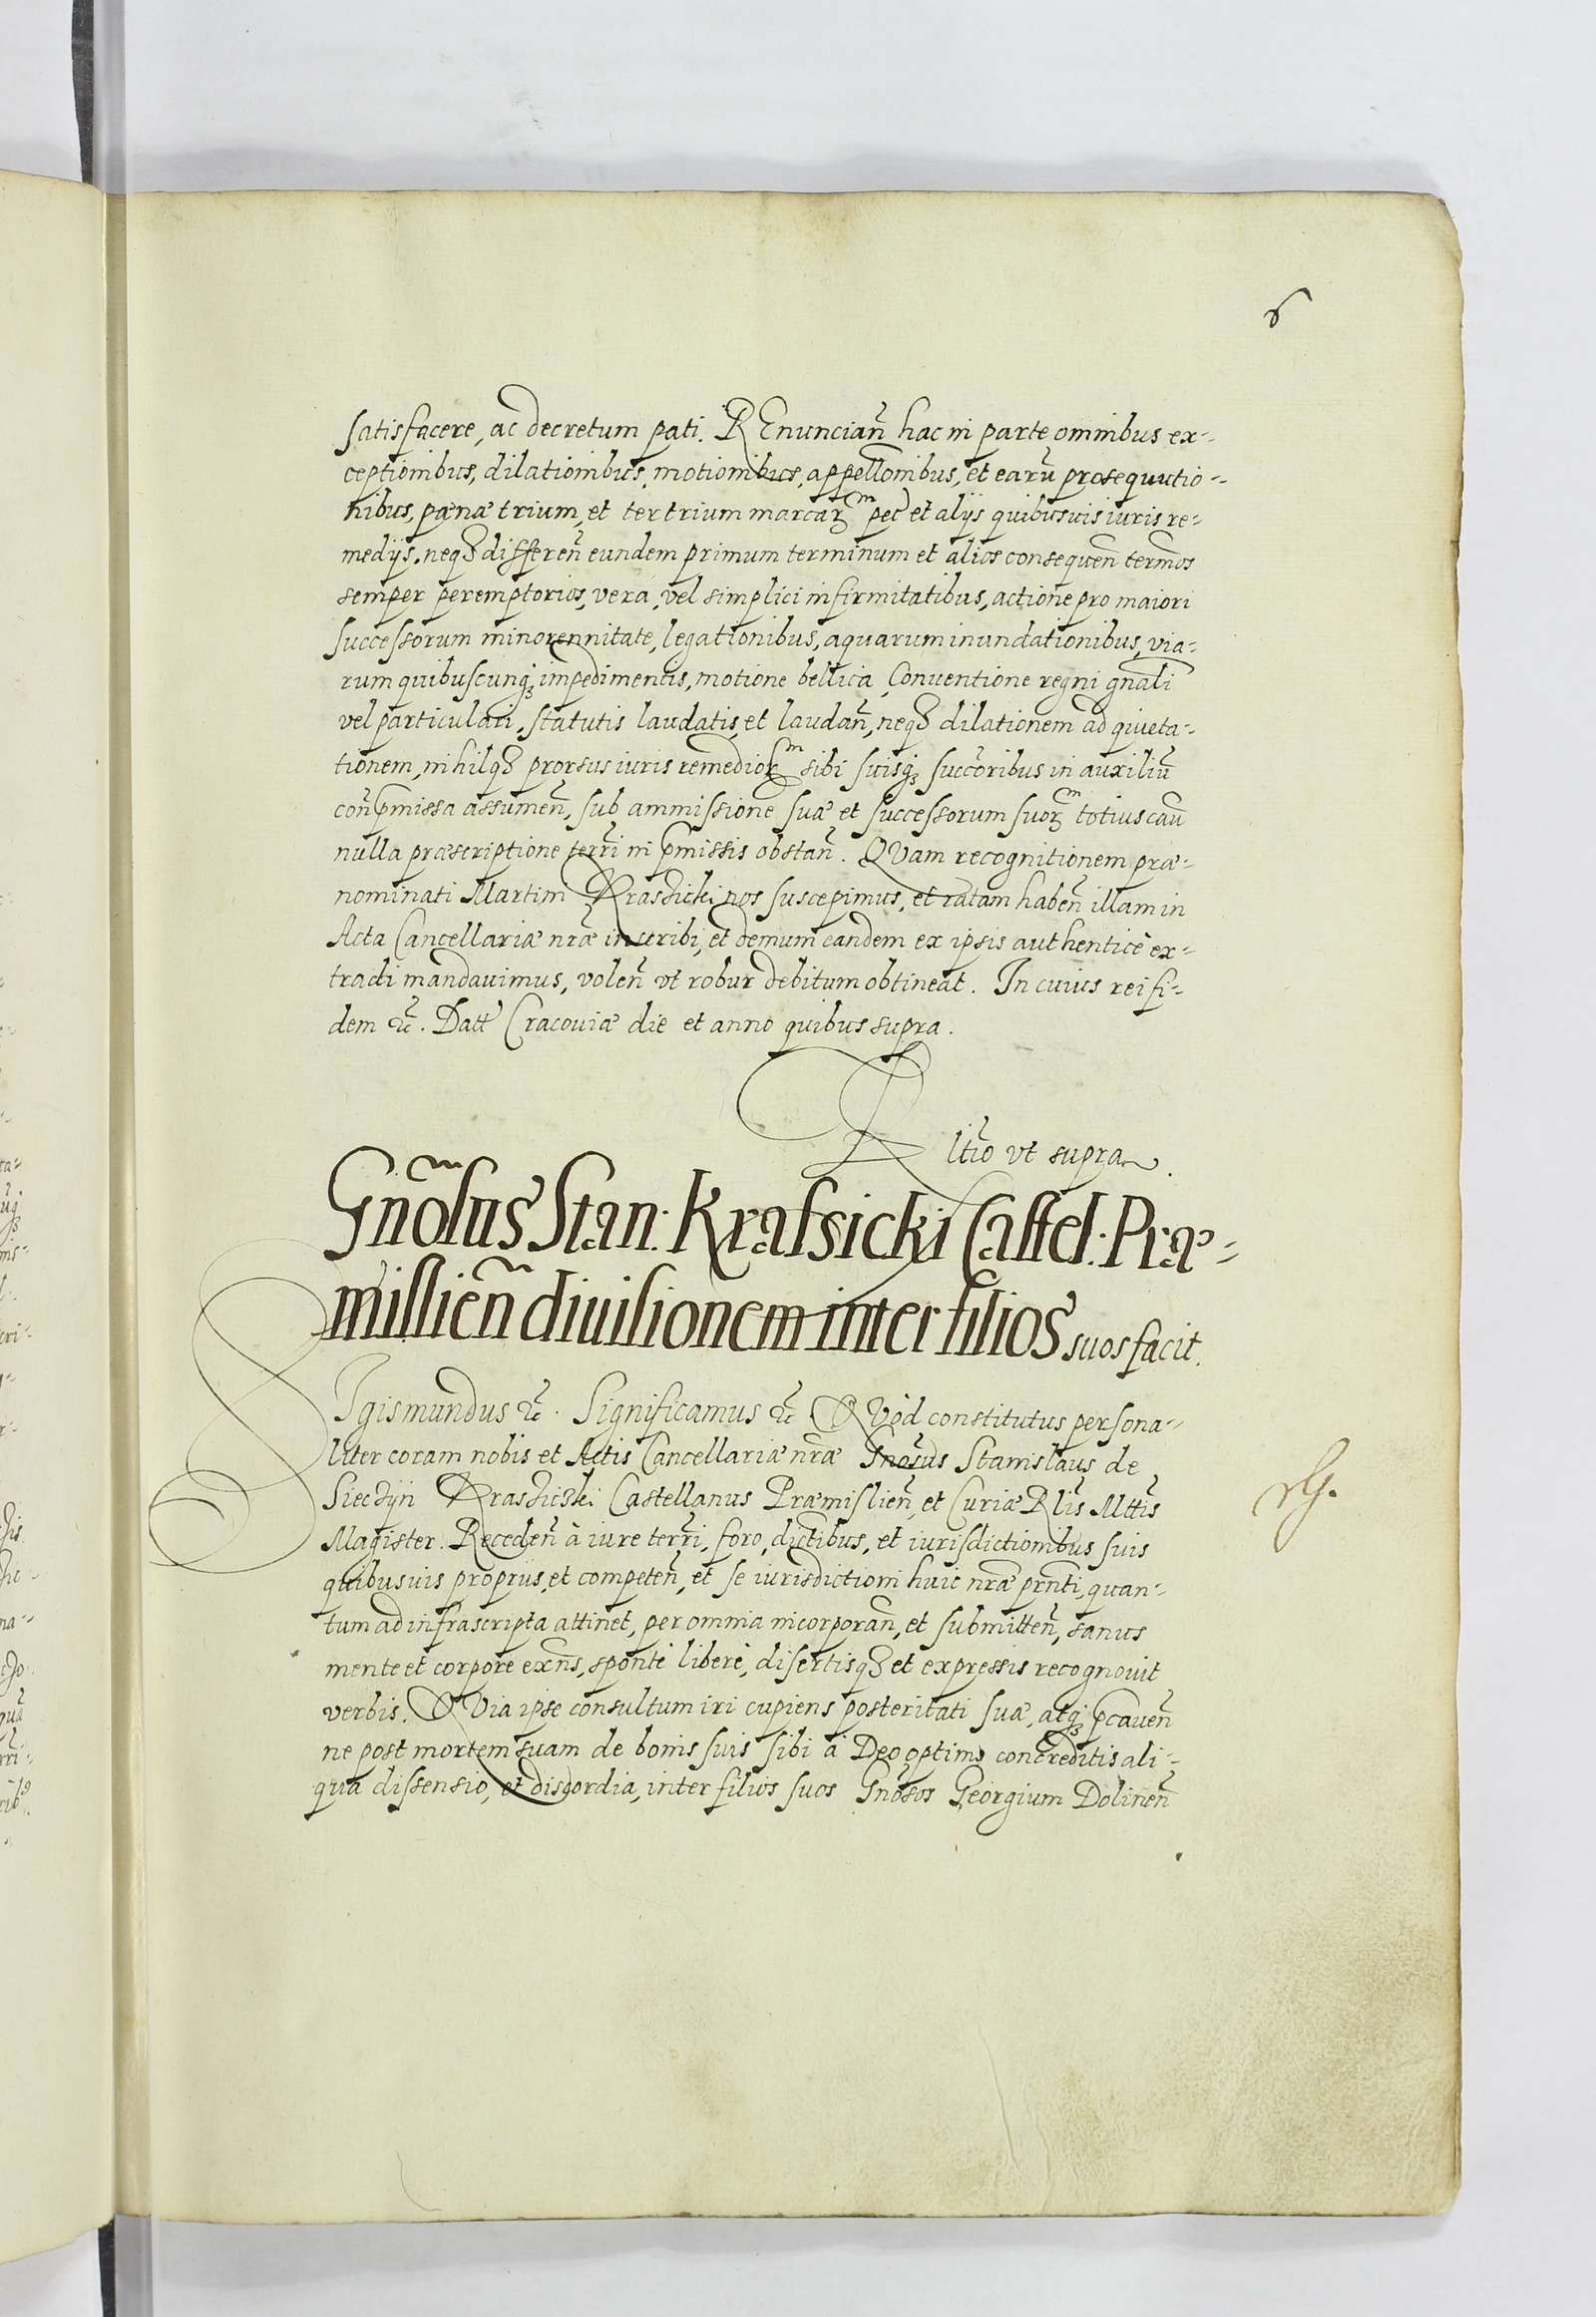 6
satisfacere, ac decretum pati. REnuncian̄ hac in parte omnibus ex-
ceptionibus, dilationibus, motionibus, appellōnibus, et earū prosequutio-
nibus, pænæ trium, et ter trium marcar̄ pec̄ et alijs quibusuis iuris re-
medijs, neq₃ differen̄ eundem primum terminum et alios consequen̄ term̄os
semper peremptorios, vera, vel simplici infirmitatibus, actione pro maiori
successorum minorennitate, legationibus, aquarum inundationibus, via-
rum quibuscunq₃ impedimentis, motione bellica, Conuentione regni gn̄ali
vel particulari, statutis laudatis, et laudan̄, neq₃ dilationem ad quieta-
tionem, nihilq₃ prorsus iuris remedior̄ sibi suisq₃ succ̄oribus in auxiliū
con̄ p̄missa assumen̄, sub ammissione suæ et successorum suor̄ totius cau̅
nulla præscriptione terr̄i in p̄missis obstan̄. QVam recognitionem præ-
nominati Martini Krasicki nos suscepimus, et ratam haben̄ illam in
Acta Cancellariæ nr̄æ inscribi, et demum eandem ex ipsis authenticè ex-
tradi mandauimus, volen̄ vt robur debitum obtineat. In cuius rei fi-
dem &c̄. Datt̄ Cracouiæ die et anno quibus supra.
Rl̄tio vt supra.
Gn̄osus Stan: Krassicki Castel: Præ-
mislien̄ diuisionem inter filios suos facit.
SIgismundus &c̄. Significamus &c̄ QVòd constitutus persona-
liter coram nobis et Actis Cancellariæ nr̄æ Gn̄osus Stanislaus de
Siecżyn Krasżicżki Castellanus Præmislien̄, et Curiæ Rl̄is Mtt̄is
Magister. Receden̄ à iure terr̄i, foro, dict̄ibus, et iurisdictionibus suis
quibusuis proprijs, et competen̄, et se iurisdictioni huic nr̄æ prn̄ti, quan-
tum ad infrascripta attinet, per omnia incorporan̄, et submitten̄, sanus
mente et corpore exn̄s, spontè liberè, disertisq₃ et expressis recognouit
verbis. QVia ipse consultum iri cupiens posteritati suæ, atq₃ p̄cauen̄
ne post mortem suam de bonis suis sibi à Deo optimo concreditis ali-
qua dissensio, et discordia, inter filios suos Gn̄osos Georgium Dolinen̄